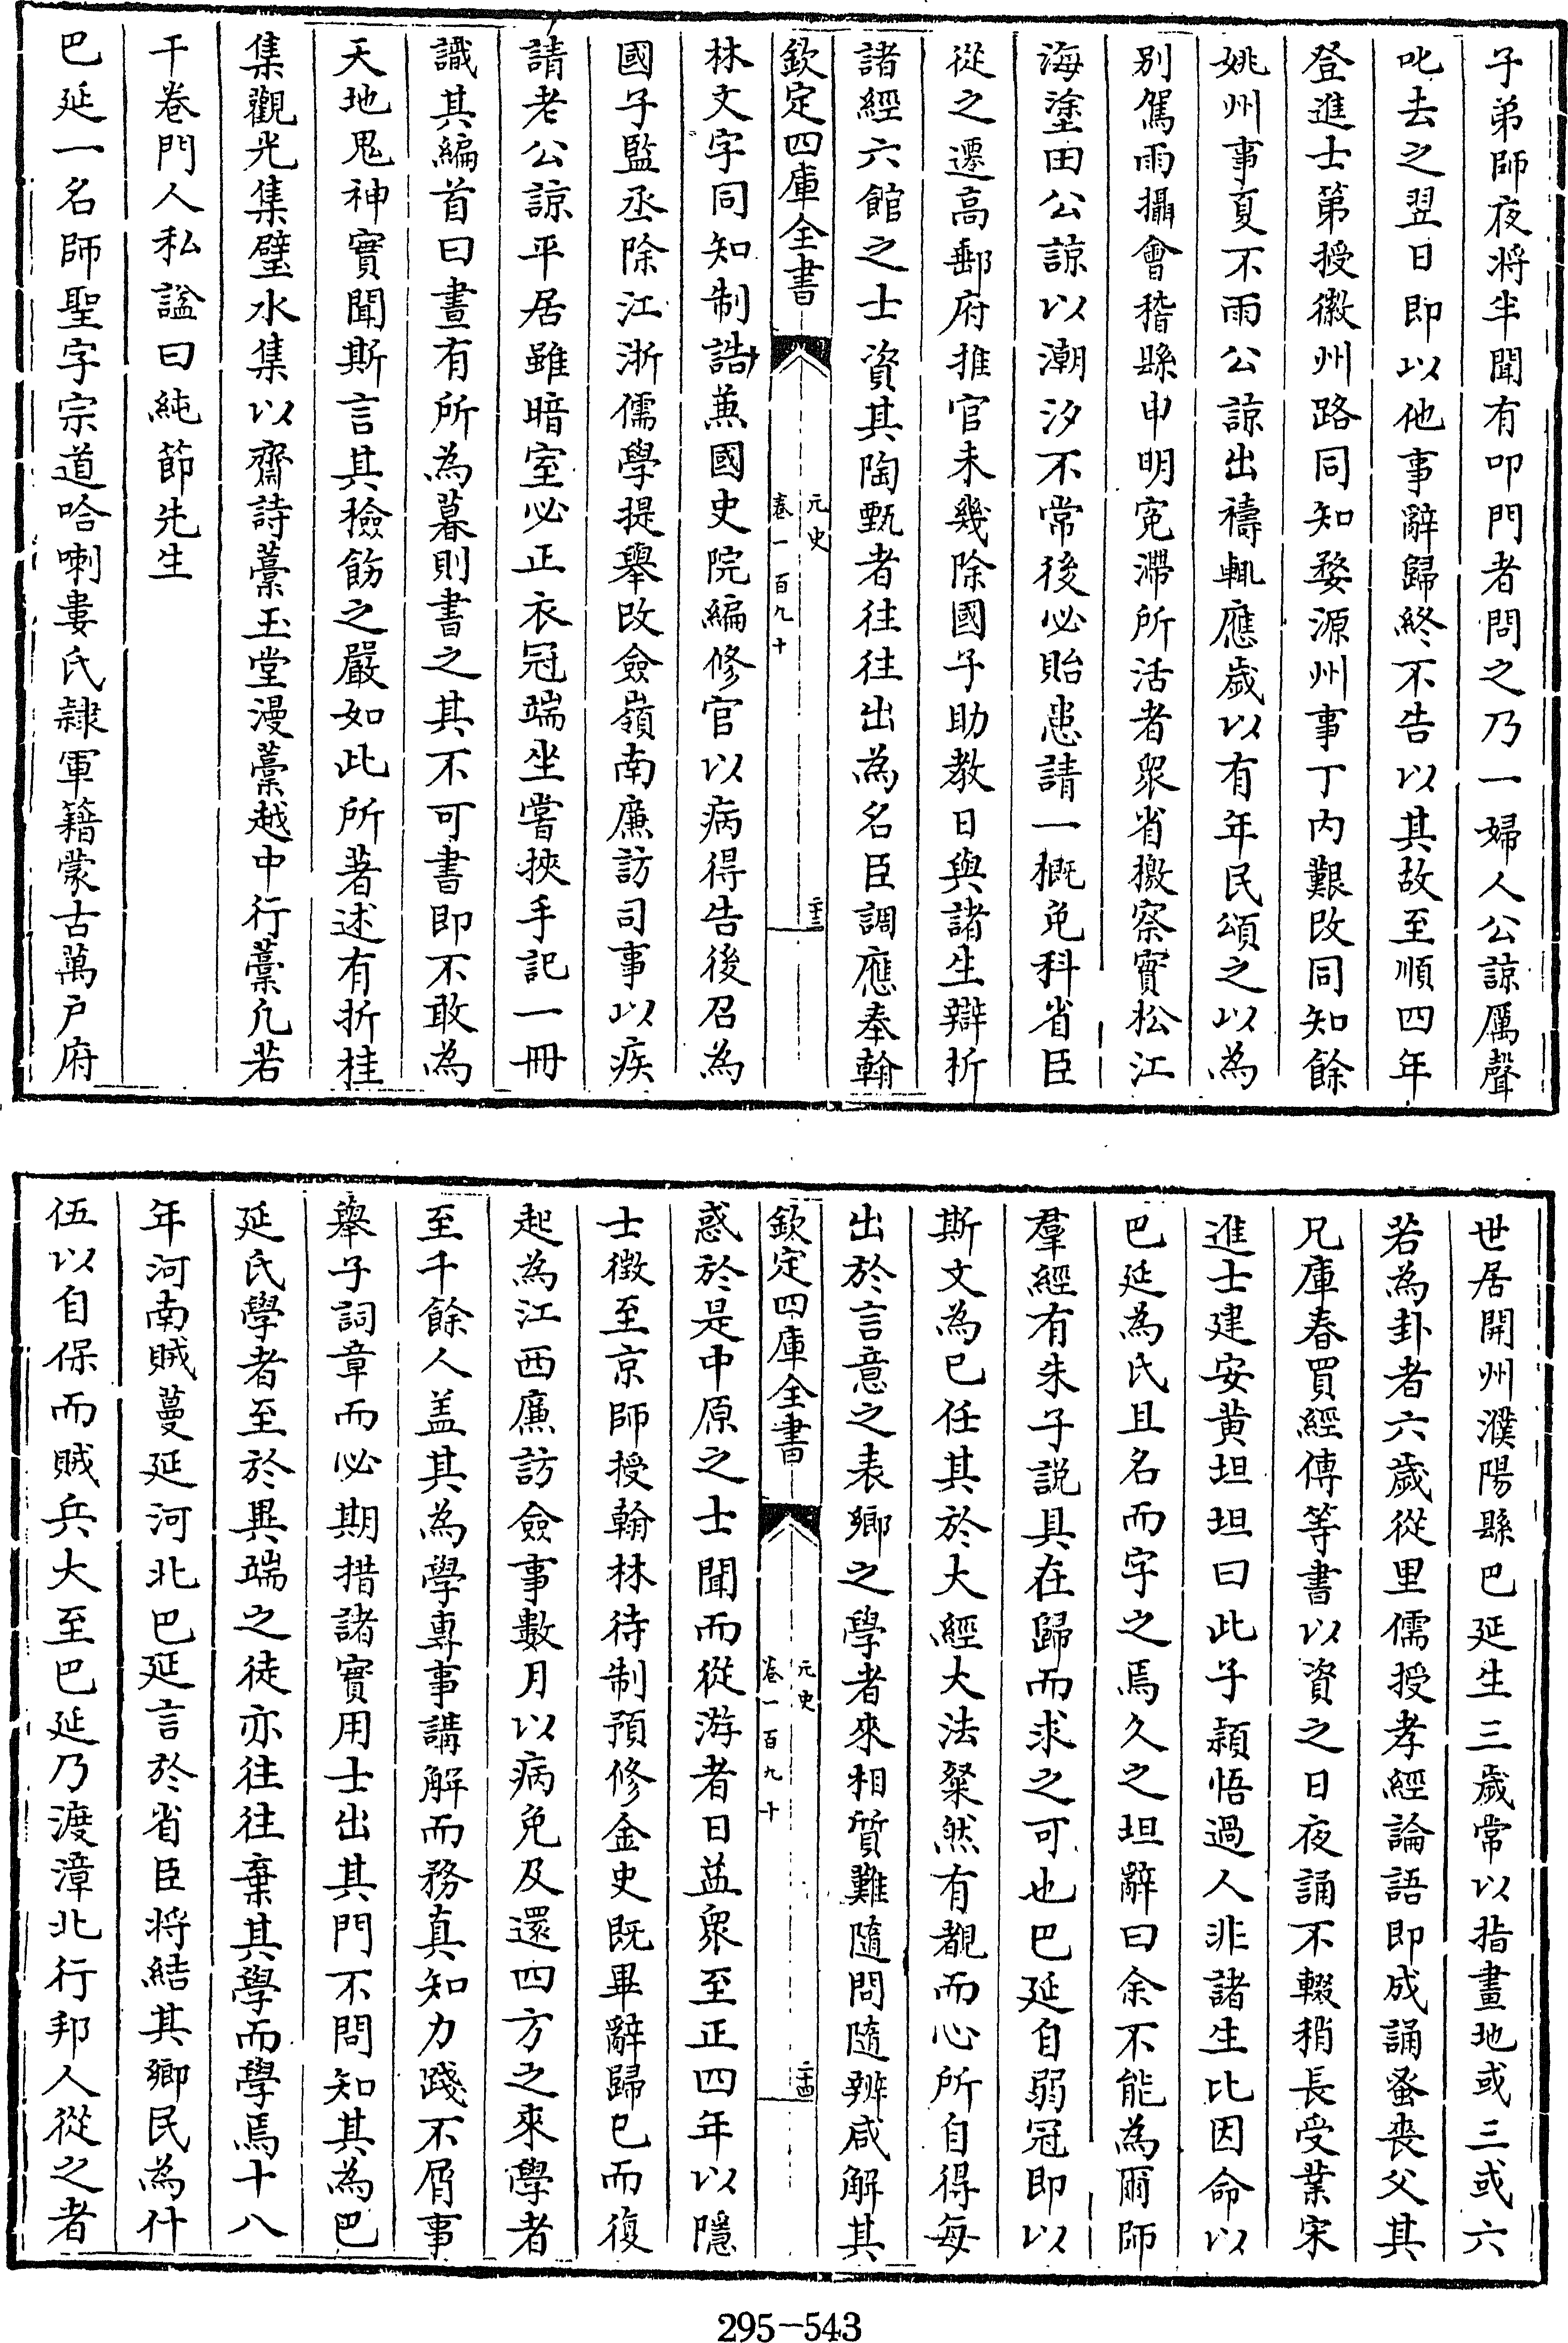 子弟師夜將半聞有叩門者問之乃一婦人公諒厲聲
叱去之翌日即以他事辭歸終不告以其故至順四年
登進士第授徽州路同知婺源州事丁内艱改同知餘
姚州事夏不雨公諒出禱輒應歲以有年民頌之以為
别駕雨攝會稽縣申明寃滯所活者眾省檄察實松江
海塗田公諒以潮汐不常後必貽患請一概免科省臣
從之遷高郵府推官未幾除國子助教日與諸生辯析
諸經六館之士資其陶甄者往往出為名臣調應奉翰
欽定四庫全書
元史
卷一百九十
二十三
林文字同知制誥兼國史院編修官以病得告後召為
國子監丞除江浙儒學提舉改僉嶺南廉訪司事以疾
請老公諒平居雖暗室必正衣冠端坐嘗挾手記一冊
識其編首曰晝有所為暮則書之其不可書即不敢為
天地鬼神實聞斯言其檢飭之嚴如此所著述有折桂
集觀光集璧水集以齋詩藁玉堂漫藁越中行藁凡若
干卷門人私諡曰純節先生
巴延一名師聖字宗道哈喇婁氏隸軍籍蒙古萬户府
世居開州濮陽縣巴延生三歲常以指畫地或三或六
若為卦者六歲從里儒授孝經論語即成誦蚤喪父其
兄庫春買經傳等書以資之日夜誦不輟稍長受業宋
進士建安黄坦坦曰此子穎悟過人非諸生比因命以
巴延為氏且名而字之焉久之坦辭曰余不能為爾師
羣經有朱子説具在歸而求之可也巴延自弱冠即以
斯文為已任其於大經大法粲然有覩而心所自得每
出於言意之表鄉之學者來相質難隨問隨辨咸解其
欽定四庫全書
元史
卷一百九十
二十四
惑於是中原之士聞而從游者日益眾至正四年以隱
士徵至京師授翰林待制預修金史既畢辭歸已而復
起為江西廉訪僉事數月以病免及還四方之來學者
至千餘人盖其為學專事講解而務真知力踐不屑事
舉子詞章而必期措諸實用士出其門不問知其為巴
延氏學者至於異端之徒亦往往棄其學而學焉十八
年河南賊蔓延河北巴延言於省臣將結其鄉民為什
伍以自保而賊兵大至巴延乃渡漳北行邦人從之者
295-543